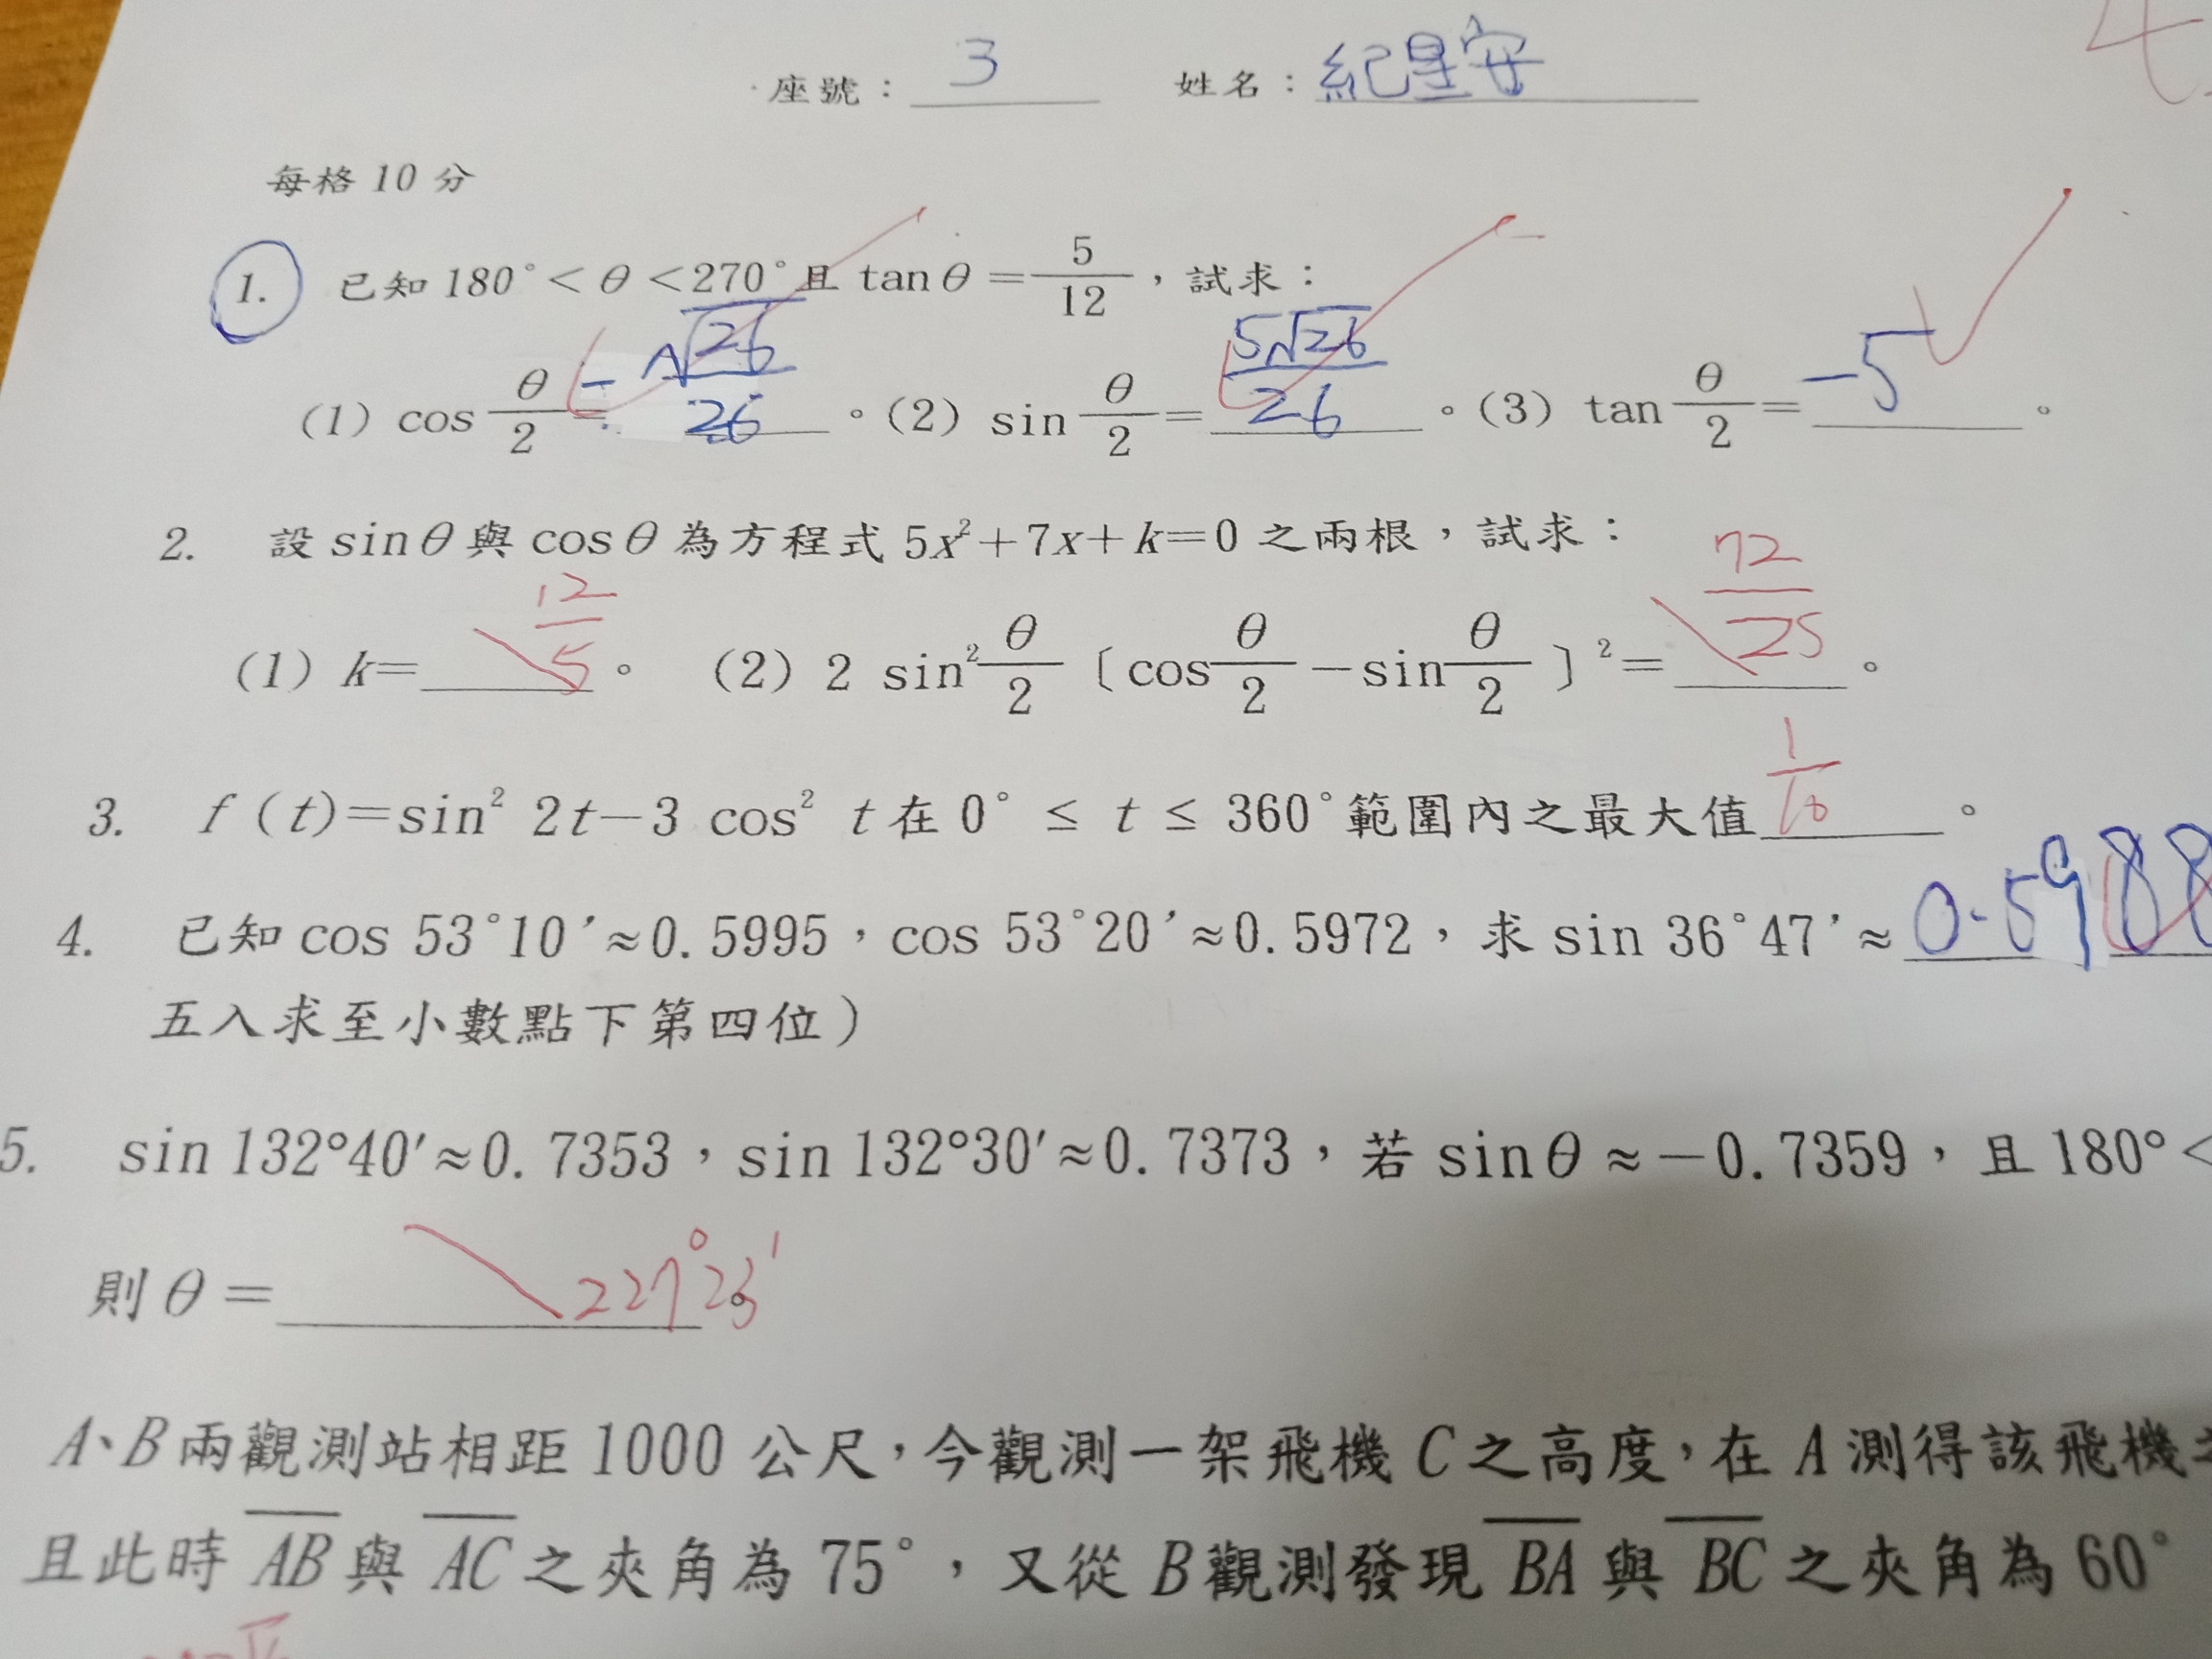 座號：3 姓名：紀星安
每格 10 分
1. 已知 180°＜θ＜270°且 tanθ＝5/12，試求：
(1) cos θ/2＝－√26/26。(2) sin θ/2＝5√26/26。(3) tan θ/2＝－5。
2. 設 sinθ 與 cosθ 為方程式 5x²＋7x＋k＝0 之兩根，試求：
(1) k＝12/5。 (2) 2 sin² θ/2〔cos θ/2－sin θ/2〕²＝72/25。
3. f (t)＝sin² 2t－3 cos² t 在 0° ≤ t ≤ 360°範圍內之最大值 1/16。
4. 已知 cos 53°10′≈0.5995，cos 53°20′≈0.5972，求 sin 36°47′≈0.5988
五入求至小數點下第四位）
5. sin 132°40′≈0.7353，sin 132°30′≈0.7373，若 sinθ≈－0.7359，且 180°＜
則 θ＝227°23′。
A、B 兩觀測站相距 1000 公尺，今觀測一架飛機 C 之高度，在 A 測得該飛機
且此時 AB 與 AC 之夾角為 75°，又從 B 觀測發現 BA 與 BC 之夾角為 60°